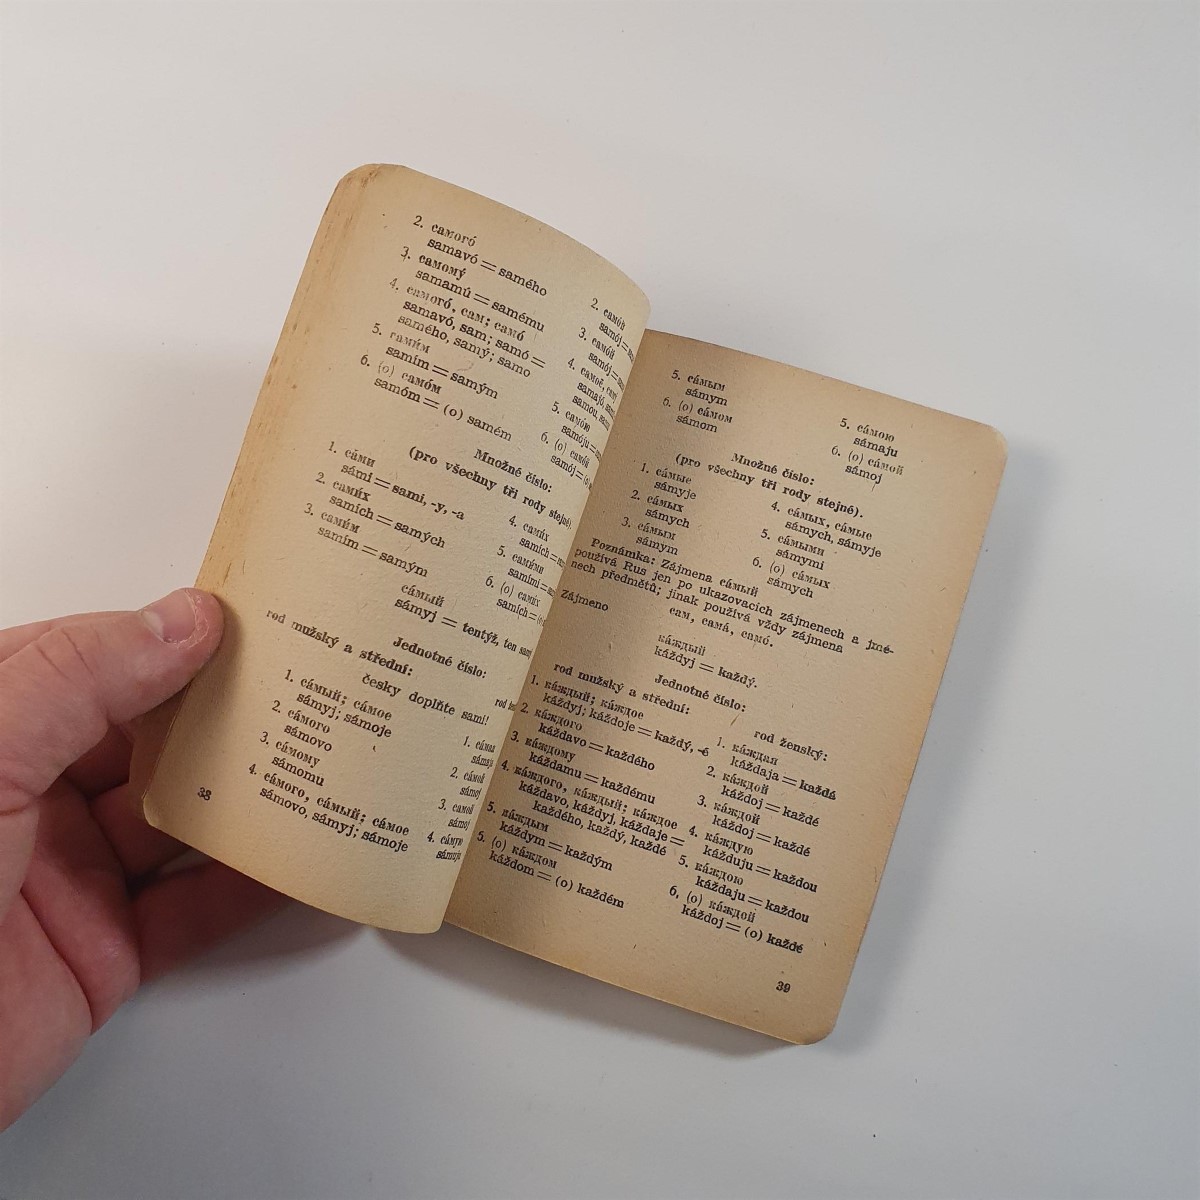 2. самого́
samavó = samého
3. самому́
samamú = samému
4. самого́, сам; само́
samavó, sam; samó =
samého, samý; samo
5. сами́м
samím = samým
6. (о) само́м
samóm = (o) samém
2. само́й
samój =
3. само́й
samój =
4. самоё, саму́
samajó,
samou,
5. само́ю
samóju =
6. (о) само́й
samój =
Množné číslo:
(pro všechny tři rody stejné).
1. са́ми
sámi = sami, -y, -a
2. сами́х
samích = samých
3. сами́м
samím = samým
4. сами́х
samích =
5. сами́ми
samími =
6. (о) сами́х
samích =
са́мый
sámyj = tentýž, ten samý
Jednotné číslo:
rod mužský a střední:
česky doplňte sami!
rod
1. са́мый; са́мое
sámyj; sámoje
2. са́мого
sámovo
3. са́мому
sámomu
4. са́мого, са́мый; са́мое
sámovo, sámyj; sámoje
1. са́мая
2. са́мой
sámoj
3. самой
sámoj
4. са́мую
38
5. са́мым
sámym
6. (о) са́мом
sámom
5. са́мою
sámaju
6. (о) са́мой
sámoj
Množné číslo:
(pro všechny tři rody stejné).
1. са́мые
sámyje
2. са́мых
sámych
3. са́мым
sámym
4. са́мых, са́мые
sámych, sámyje
5. са́мыми
sámymi
6. (о) са́мых
sámych
Poznámka: Zájmena са́мый
používá Rus jen po ukazovacích zájmenech a jmé-
nech předmětů; jinak používá vždy zájmena
сам, сама́, само́.
Zájmeno
ка́ждый
káždyj = každý.
Jednotné číslo:
rod mužský a střední:
1. ка́ждый; ка́ждое
káždyj; káždoje = každý, -é
2. ка́ждого
káždavo = každého
3. ка́ждому
káždamu = každému
4. ка́ждого, ка́ждый; ка́ждое
káždavo, káždyj, káždaje =
každého, každý, každé
5. ка́ждым
káždym = každým
6. (о) ка́ждом
káždom = (o) každém
rod ženský:
1. ка́ждая
káždaja = každá
2. ка́ждой
káždoj = každé
3. ка́ждой
káždoj = každé
4. ка́ждую
kážduju = každou
5. ка́ждою
káždaju = každou
6, (о) ка́ждой
káždoj = (o) každé
39